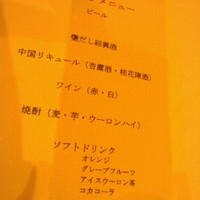 メニュー
ビール
甕だし紹興酒
中国リキュール（杏露酒・桂花陳酒）
ワイン（赤・白）
焼酎（麦・芋・ウーロンハイ）
ソフトドリンク
オレンジ
グレープフルーツ
アイスウーロン茶
コカコーラ